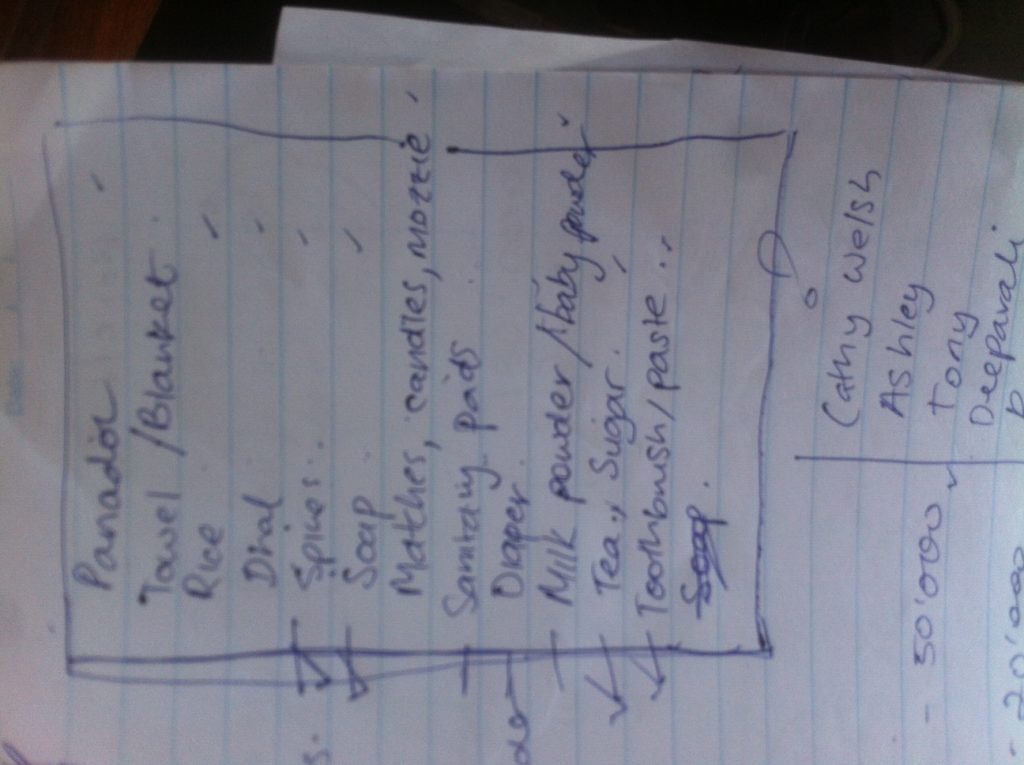 Panadol
Towel / Blanket
Rice
Dhal
Spices..
Soap
Mathes, candles, mozzie
Sanitary pads
Diaper
Milk powder / baby powder
Tea, Sugar.
Toothbrush / paste
Soap.
Cathy Welsh
Ashley
- 50'000 Tony
Deepavali
- 20'000